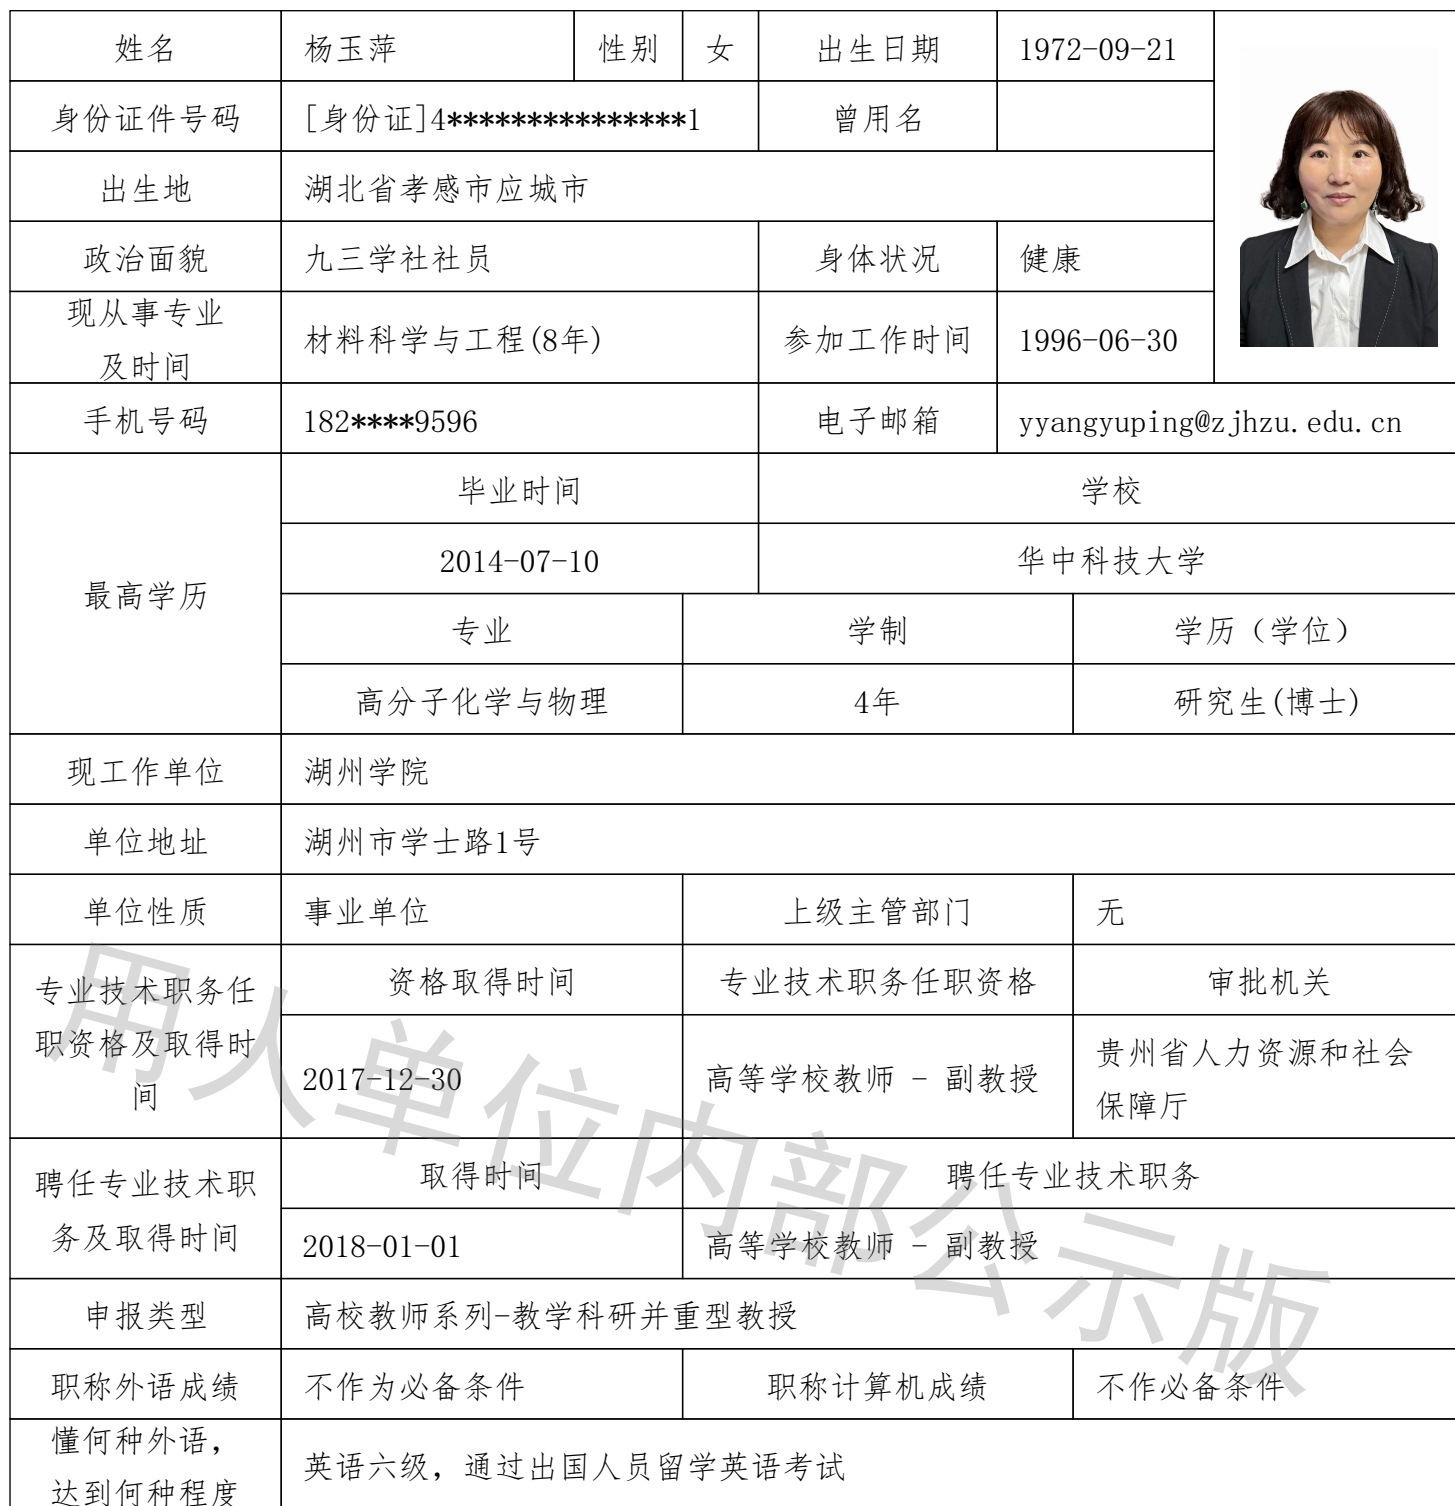 姓名 杨玉萍 性别 女 出生日期 1972-09-21
身份证件号码 [身份证]4***************1 曾用名
出生地 湖北省孝感市应城市
政治面貌 九三学社社员 身体状况 健康
现从事专业
及时间
材料科学与工程(8年) 参加工作时间 1996-06-30
手机号码 182****9596 电子邮箱 yyangyuping@zjhzu.edu.cn
最高学历
毕业时间 学校
2014-07-10 华中科技大学
专业 学制 学历（学位）
高分子化学与物理 4年 研究生(博士)
现工作单位 湖州学院
单位地址 湖州市学士路1号
单位性质 事业单位 上级主管部门 无
专业技术职务任
职资格及取得时
间
资格取得时间 专业技术职务任职资格 审批机关
2017-12-30 高等学校教师 - 副教授 贵州省人力资源和社会
保障厅
聘任专业技术职
务及取得时间
取得时间 聘任专业技术职务
2018-01-01 高等学校教师 - 副教授
申报类型 高校教师系列-教学科研并重型教授
职称外语成绩 不作为必备条件 职称计算机成绩 不作必备条件
懂何种外语，
达到何种程度
英语六级，通过出国人员留学英语考试
用人单位内部公示版